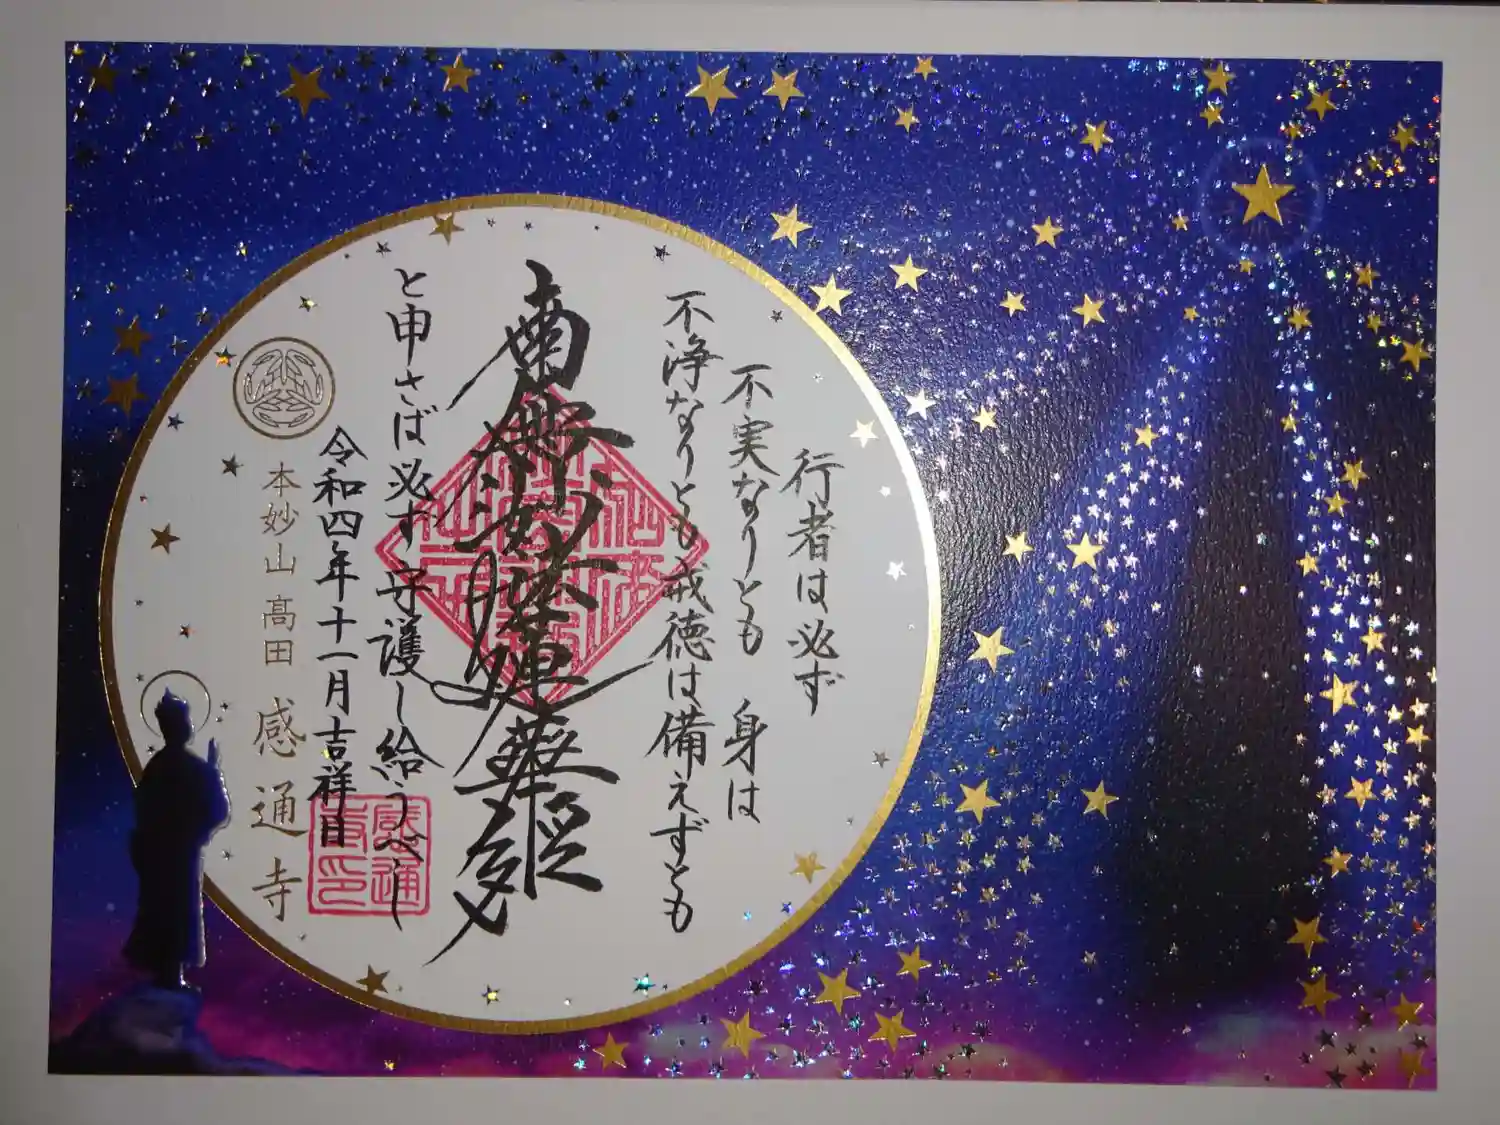 行者は必ず
不実なりとも 身は
不浄なりとも 戒徳は備えずとも
南無妙法蓮華経
と申さば必ず守護し給うべし
令和四年十一月吉祥日
本妙山高田 感通寺